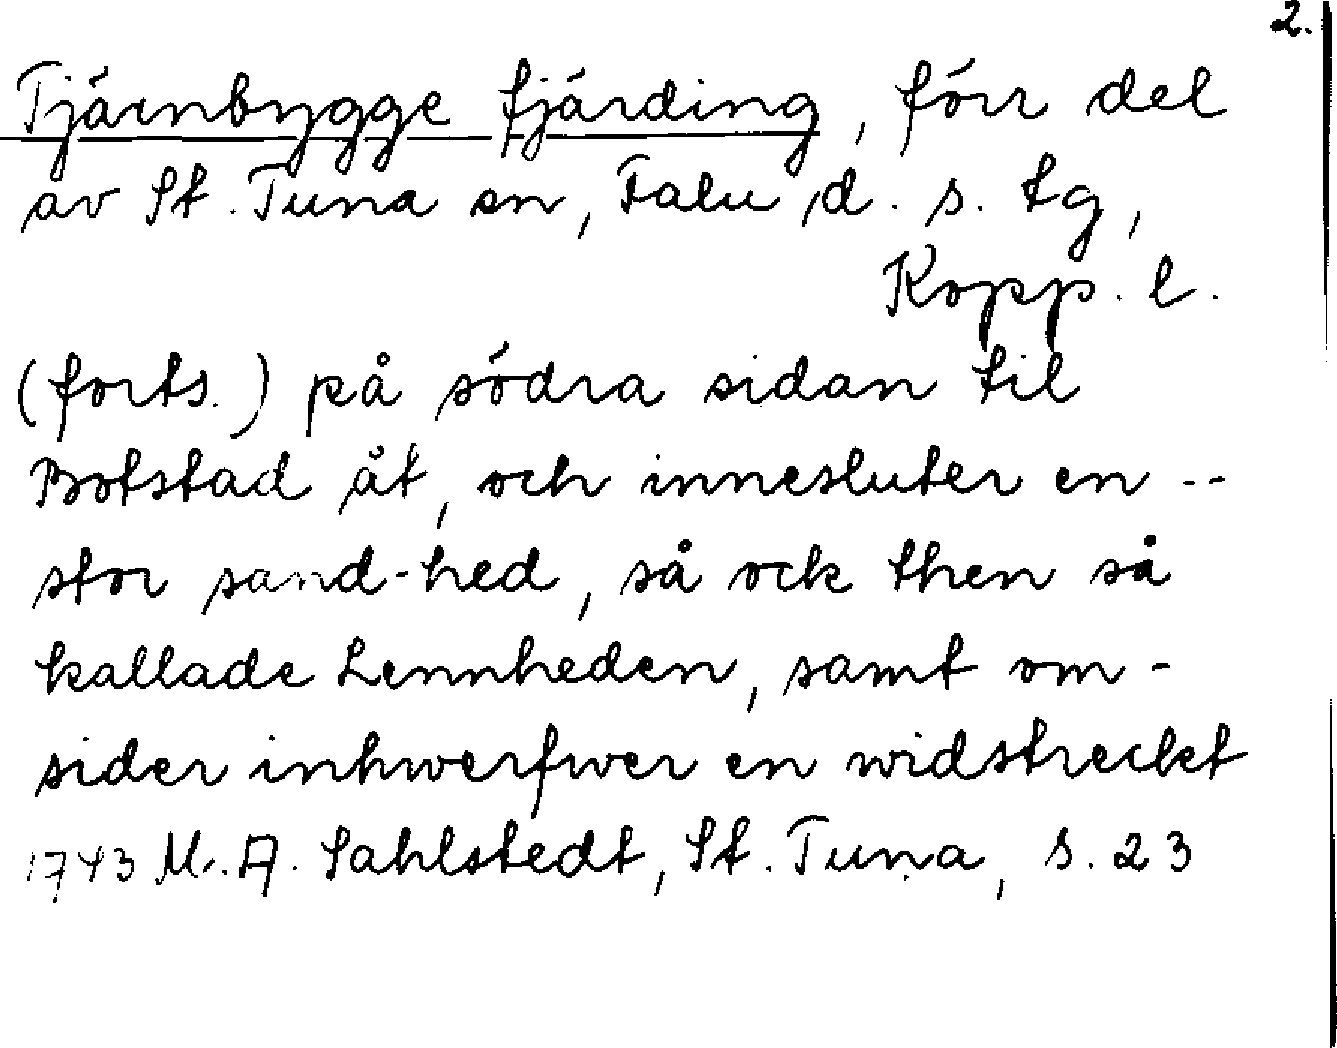 2.
Tjärnbygge fjärding, förr del
av St. Tuna sn, Falu d. s. tg,
Kopp. l.
(forts.) på södra sidan til
Botstad åt, och innesluter en --
stor sand-hed, så ock then så
kallade Lennheden, samt om-
sider inhwerfwer en widstrecket
1743 M. A. Sahlstedt, St. Tuna, s. 23